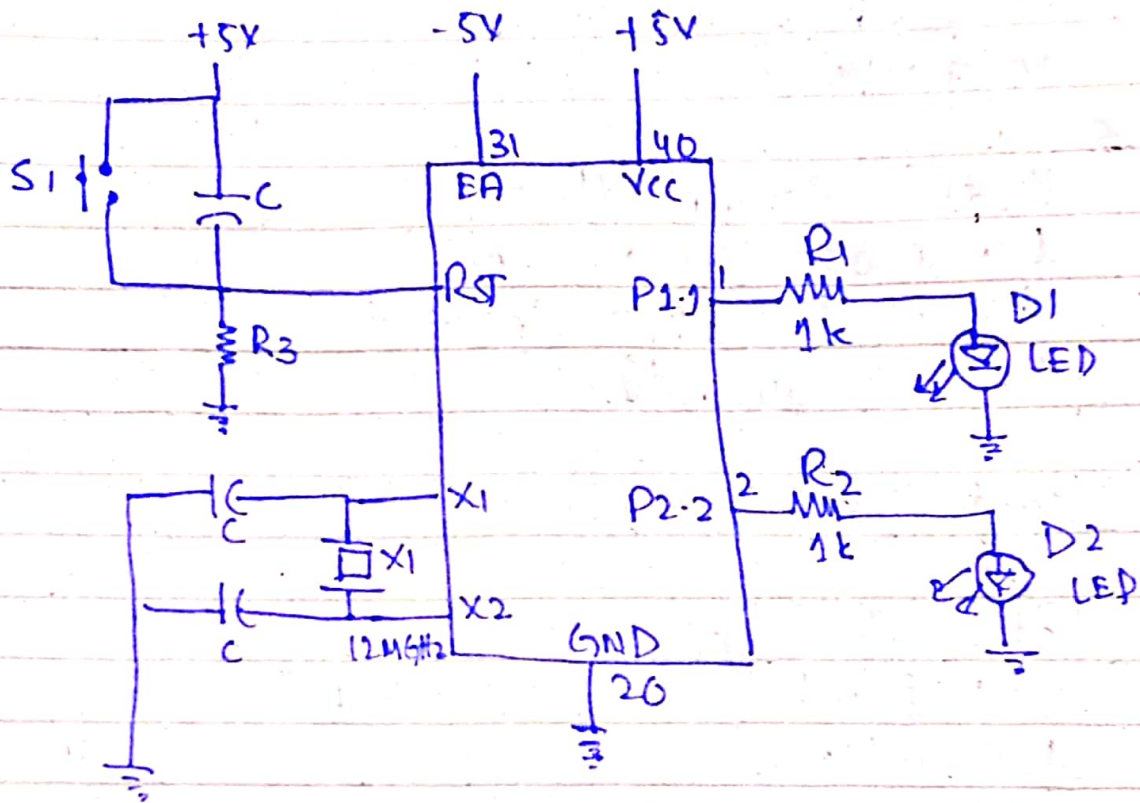 +5V
-5V
+5V
31
40
EA
VCC
S1
C
RST
P1.1
1
R1
1k
D1
LED
R3
X1
C
X1
P2.2
2
R2
1k
D2
LED
X2
C
12MGHz
GND
20